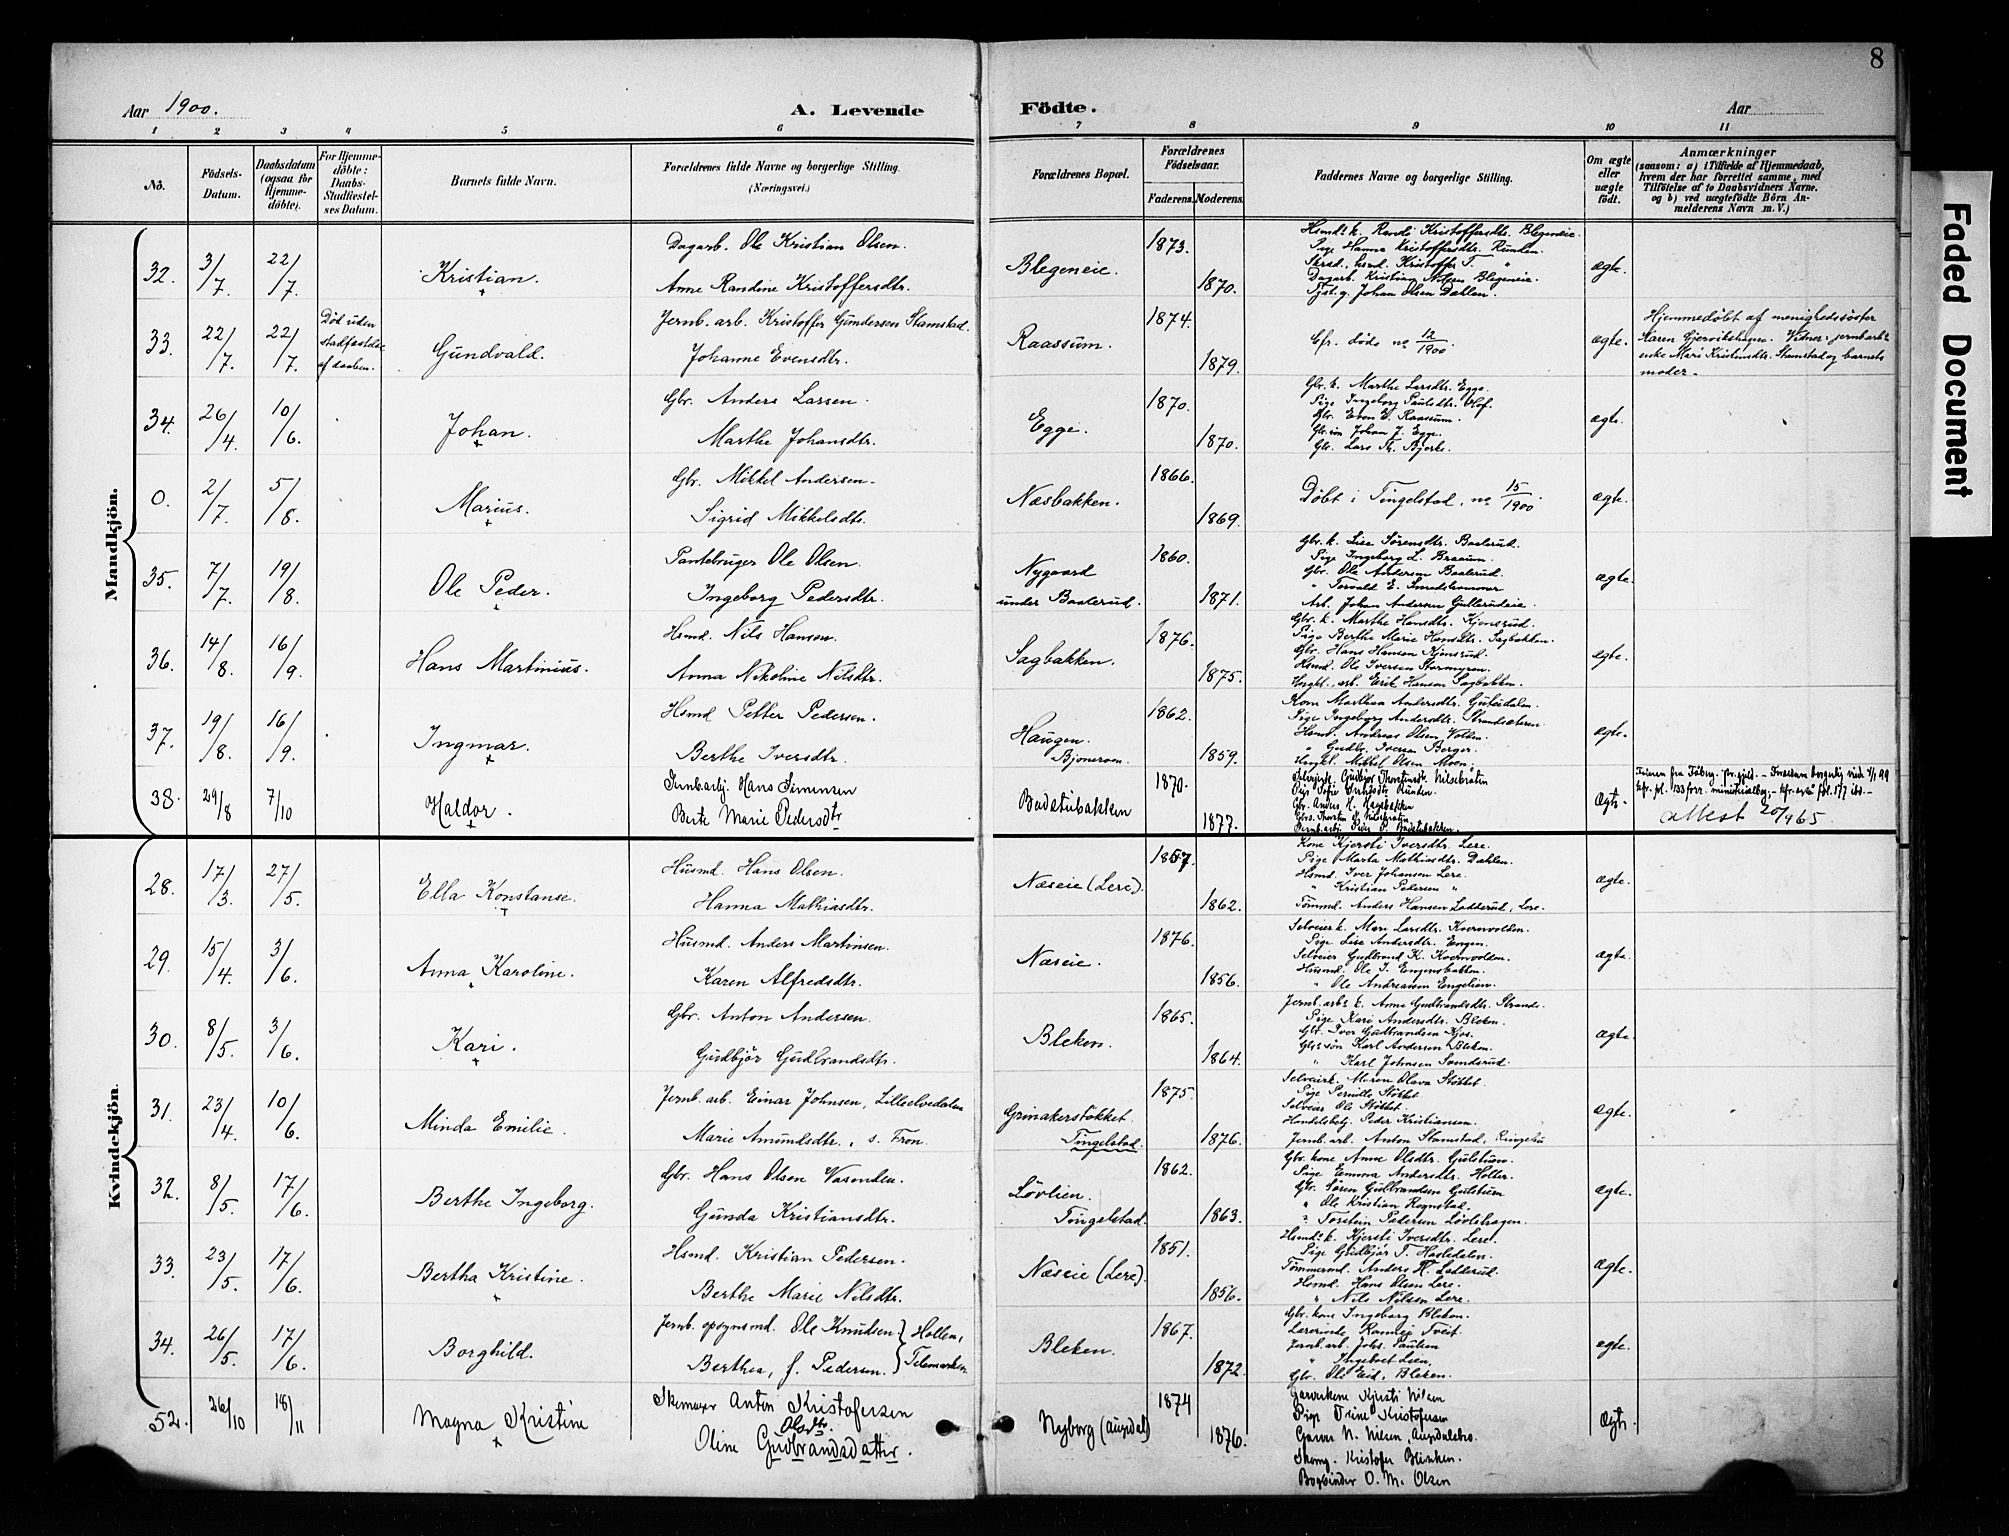 8
Aar 1900.
A. Levende Födte.
Aar
1 2 3 4 5 6 7 8 9 10 11
No.
Födsels-Datum.
Daabsdatum (ogsaa for Hjemme-döbte).
For Hjemme-döbte: Daabs-Stadfæstel-ses Datum.
Barnets fulde Navn.
Forældrenes fulde Navne og borgerlige Stilling. (Næringsvei.)
Forældrenes Bopæl.
Forældrenes Födselsaar.
Faderens. Moderens.
Faddernes Navne og borgerlige Stilling.
Om ægte eller uægte födt.
Anmærkninger
(saasom: a) i Tilfælde af Hjemmedaab, hvem der har forrettet samme, med Tilföielse af to Daabsvidners Navne. og b) ved uægtefödte Börn An-melderens Navn m. V.)
Faded Document
Mandkjön.
32. 3/7. 22/7. Kristian.
Dagarb. Ole Kristian Olsen.
Anne Randine Kristoffersdtr.
Blegeneie. 1873. 1870.
Hsmds k. Randi Kristoffersdtr. Blegeneie.
Pige Hanna Kristoffersdtr. Ründen.
Skræd., hsmd. Kristoffer T. "
Dagarb. Kristian Nilsen Blegeneie.
Tjst.g. Johan Olsen Dahlen.
ægte.
33. 22/7. 22/7. Død uden stadfæstelse af daaben.
Gundvald.
Jernb. arb. Kristoffer Gundersen Stamstad.
Johanne Evensdtr.
Raassum. 1874. 1879.
Cfr. døde no 12/1900.
ægte.
Hjemmedøbt af menighedssøster
Karen Gjervikshagen. Vidner: jernbarb.s
enke Mari Kristiansdtr. Stamstad og barnets
moder.
34. 26/4 10/6. Johan.
Gbr. Anders Larsen.
Marthe Johansdtr.
Egge. 1870. 1870.
Gbr. k. Marthe Larsdtr. Egge.
Pige Ingeborg Paulsdtr. Hof.
Gbr. Even E. Raassum.
Gbr. søn Johan J. Egge.
Gbr. Lars Th. Bjerke.
ægte.
0. 2/7. 5/8. Marius.
Gbr. Mikkel Andersen.
Sigrid Mikkelsdtr.
Næsbakken. 1866. 1869.
Døbt i Tingelstad, no 15/1900.
ægte.
35. 7/7. 19/8. Ole Peder.
Pantebruger Ole Olsen.
Ingeborg Pedersdtr.
Nygaard
under Baalerud. 1860. 1871.
Gbr. k. Lise Sørensdtr. Baalerud.
Pige Ingeborg L. Braaum.
Gbr. Ole Andersen Baalerud.
" Torvald E. Smedshammer
Arb. Johan Andersen Gullerudeie.
ægte.
36. 14/8. 16/9. Hans Martinius.
Hsmd. Nils Hansen.
Anna Nikoline Nilsdtr.
Sagbakken. 1876. 1875.
Gbr. k. Marthe Hansdtr. Kjonsrud.
Pige Berthe Marie Hansdtr. Sagbakken.
Gbr. Hans Hansen Kjonsrud.
Hsmd. Ole Iversen Stormyren.
Ungkl., arb. Erik Hansen Sagbakken.
ægte.
37. 19/8. 16/9. Ingmar.
Hsmd. Petter Pedersen.
Berthe Iversdtr.
Haugen.
Bjoneroen. 1862. 1859.
Kone Marthea Andersdtr.
Pige Ingeborg Andersdtr. Strandsæteren.
Hsmd. Andreas Olsen Vollen.
" Gudbr. Iversen Berger.
Ungkl. Mikkel Olsen Moen.
ægte.
38. 29/8 7/10 Haldor.
Jernb.arbj. Hans Simensen
Berte Marie Pedersdtr
Badstubakken 1870. 1877.
Gudbjør Thorstensdtr. Nilsebraten
Pige Sofie Ründen.
Gbr. Anders H. Hagebakken
Gbrs. Thorsten P. Nilsebraten
Jernb.arbj. Peder P. Badstubakken.
Ægte.
Faderen fra Fåberg pr.gjeld. - Forældrene borgerlig viede
attest 20/9 65.
Kvindekjön.
28. 17/3. 27/5. Ella Konstanse.
Husmd. Hans Olsen.
Hanna Mathiasdtr.
Næseie (Lere). 1857. 1862.
Kone Kjersti Iversdtr. Lere.
Pige Marta Mathiasdtr. Dahlen.
Hsmd. Iver Johansen Lere.
" Kristian Pedersen "
Tömmd. Anders Hansen Lodderud, Lere.
ægte.
29. 15/4. 3/6. Anna Karoline.
Husmd. Anders Martinsen.
Karen Alfredsdtr.
Næseie. 1876. 1856.
Selveier k. Mari Larsdtr. Kvernvolden.
Pige Lise Andersdtr. Engen.
Selveier Gudbrand K. Kvernvolden.
Husmd. Ole J. Engensbakken.
" Ole Andreassen Engelien.
ægte.
30. 8/5. 3/6. Kari.
Gbr. Anton Andersen.
Gudbjör Gudbrandsdtr.
Bleken. 1865. 1864.
Jernb. arbs k. Anne Gudbrandsdtr. Strande.
Pige Kari Andersdtr. Bleken.
Gbr. Iver Gudbrandsen Kjos.
Gbrs søn Karl Andersen Bleken.
" Karl Johnsen Svenderud.
ægte.
31. 23/4. 10/6. Minda Emilie.
Jernb. arb. Einar Johnsen, Lilleelvedalen
Marie Amundsdtr., s. Fron.
Grinakerstökket.
Tingelstad. 1875. 1876.
Selveierk. Maren Olava Støkket.
Pige Pernille Støkket
Selveier Ole Støkket.
Handelsbetj. Peder Kristiansen.
Jernb. arb. Anton Stamstad, Ringebu
ægte.
32. 8/5. 17/6. Berthe Ingeborg.
Gbr. Hans Olsen Vasenden.
Gunda Kristiansdtr.
Løvlien.
Tingelstad. 1862. 1863.
Gbr. kone Anne Olsdtr. Gulstuen.
Pige Emma Andersdtr. Holter.
Gbr. Sören Gudbrandsen Gulstuen
" Ole Kristian Rognstad.
" Torstein Pedersen Løvlihagen.
ægte.
33. 23/5. 17/6. Bertha Kristine.
Hsmd. Kristian Pedersen.
Berthe Marie Nilsdtr.
Næseie (Lere). 1851. 1856.
Hsmds k. Kjersti Iversdtr. Lere.
Pige Gudbjör T. Hasledalen.
Tömmermd. Anders H. Lodderud.
Hsmd. Hans Olsen Lere.
" Nils Nilsen Lere.
ægte.
34. 26/5. 17/6. Borghild.
Jernb. opsynsmd. Ole Knudsen } Hollen,
Berthea, f. Pedersen. } Telemarken
Bleken. 1867. 1872.
Gbr. kone Ingeborg Bleken.
Lærerinde Rannei Tveit.
Jernb. arb. Johs. Paulsen
" Ingebret Lien.
Gbr. Ole Eid, Bleken.
ægte.
52. 26/10 18/11 Magna Kristine
Skomager Anton Kristofersen
Olsdtr.
Oline Gudbrandsdatter.
Nyborg (Augedal) 1874 1876.
Garverkone Kjersti Nilsen
Pige Trine Kristofersen
Garver N. Nilsen, Augedalsbro.
Skomg. Kristofer Blinken.
Bogbinder O. M. Olsen
Ægte.